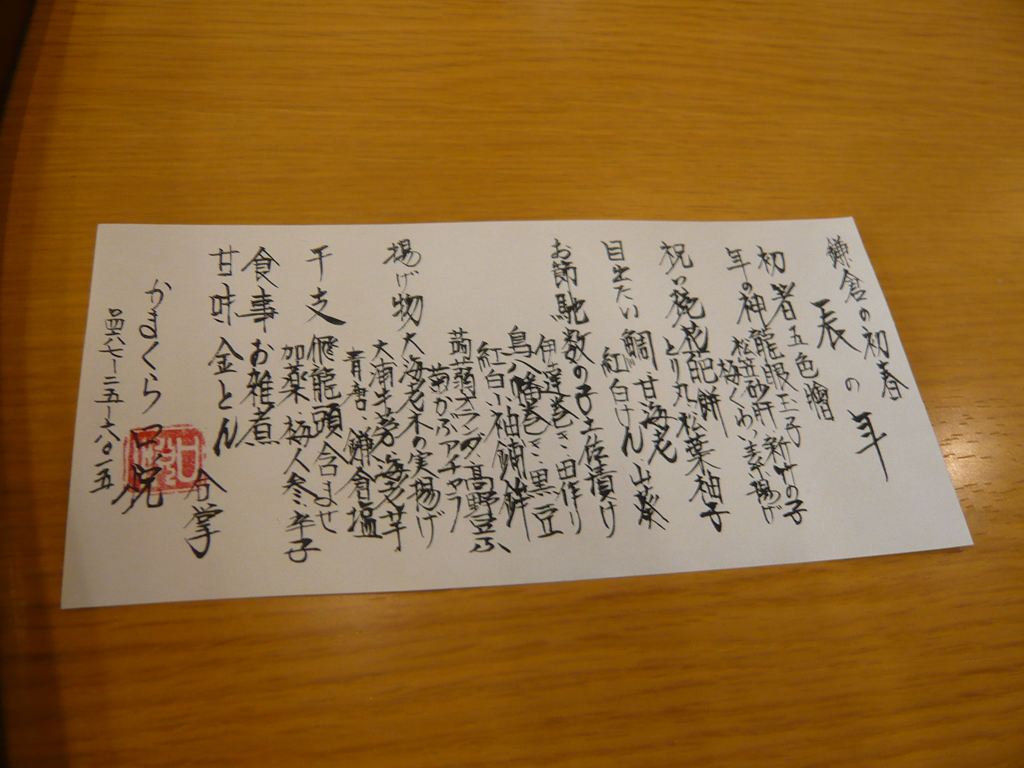 鎌倉の初春
辰の年
初者 五色膾
年の神 龍眼玉子 新竹の子
松笠砂肝
梅くわい素揚げ
祝い椀 花肥餅
とり丸 松葉柚子
目出たい 鯛、甘海老
紅白けん 山葵
お節馳 数の子土佐漬け
伊達巻き 田作り
鳥八幡巻き 黒豆
紅白、袖
蒟蒻 高野豆ふ
菊かぶアチャラ
揚げ物 大海老木の実揚げ
大浦牛蒡 海老芋
青唐 鎌倉塩
干支 飛龍頭含ませ
加薬、梅人参、辛子
食事 お雑煮
甘味 金とん
合掌
かまくら 口悦
四六七-二五-六八〇五